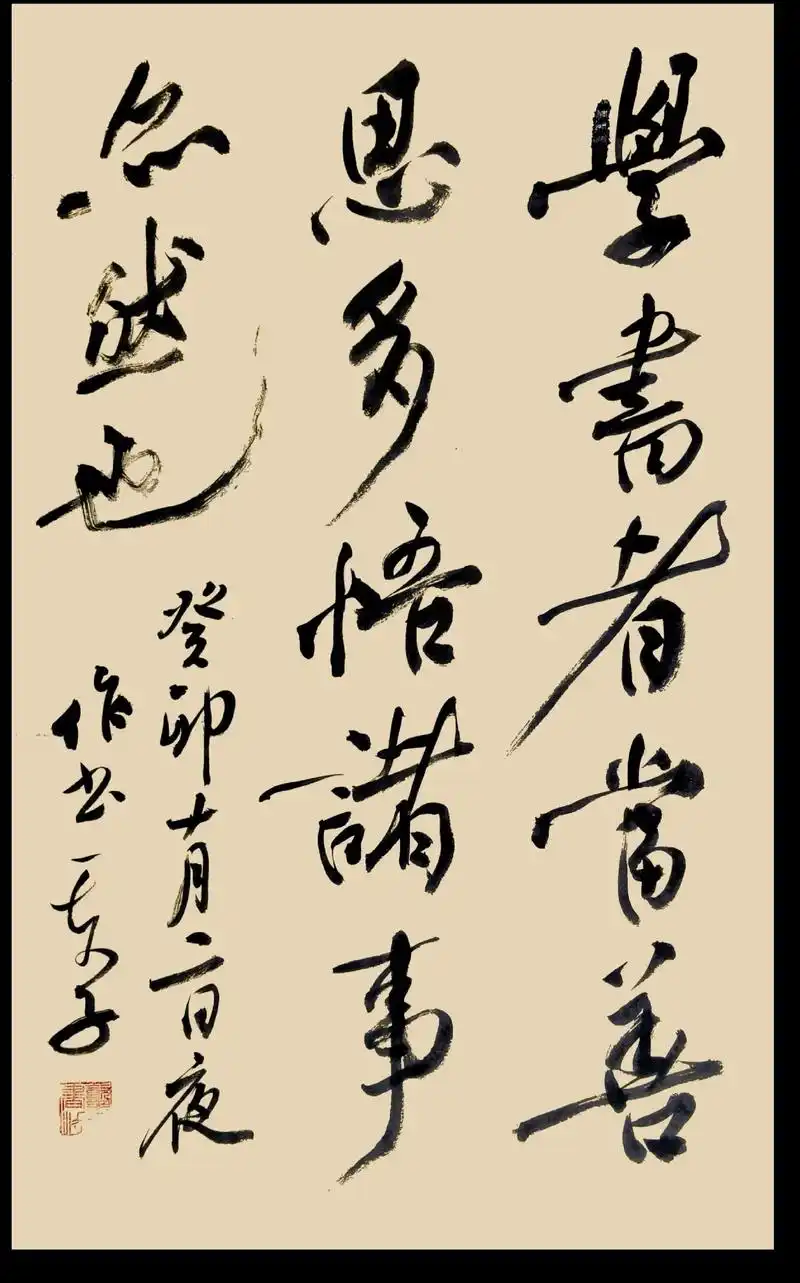 學書者當善
思多悟諸事
亦然也
癸卯十月二日夜
作书子